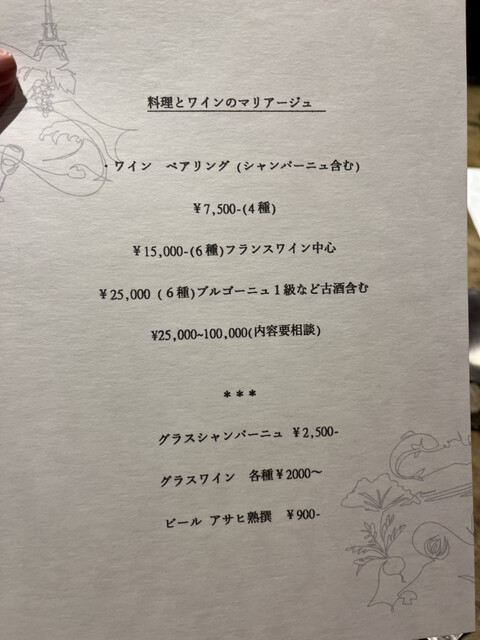 料理とワインのマリアージュ
・ワイン ペアリング (シャンパーニュ含む)
¥7,500-(4種)
¥15,000-(6種)フランスワイン中心
¥25,000 (６種)ブルゴーニュ１級など古酒含む
¥25,000~100,000(内容要相談)
***
グラスシャンパーニュ ¥2,500-
グラスワイン 各種¥2000～
ビール アサヒ熟撰 ¥900-